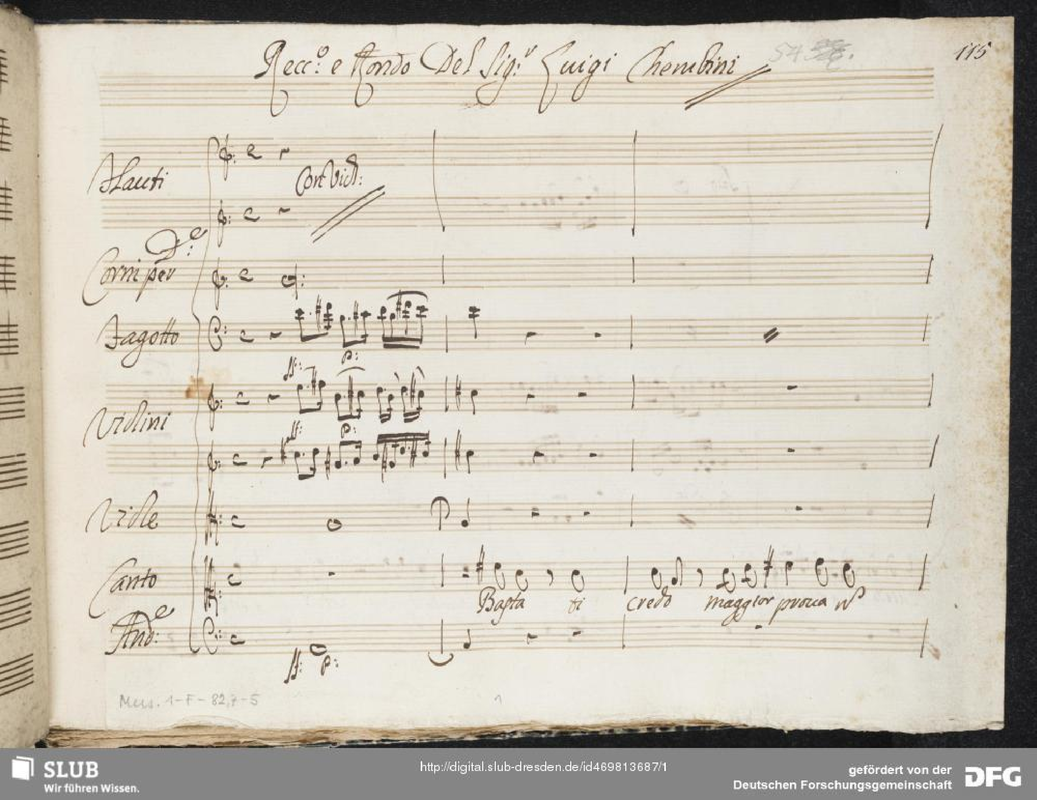 Recc.º e Rondo Del Sig.r Luigi Cherubini
115
Flauti
Con Viol:
Corni per D.e
Fagotto
ff: p:
Violini
ff: p:
Viole
Canto
Basta ti credo maggior prova
And.e:
ff: p:
Mus. 1-F-82,7-5
1
SLUB
Wir führen Wissen.
http://digital.slub-dresden.de/id469813687/1
gefördert von der
Deutschen Forschungsgemeinschaft
DFG